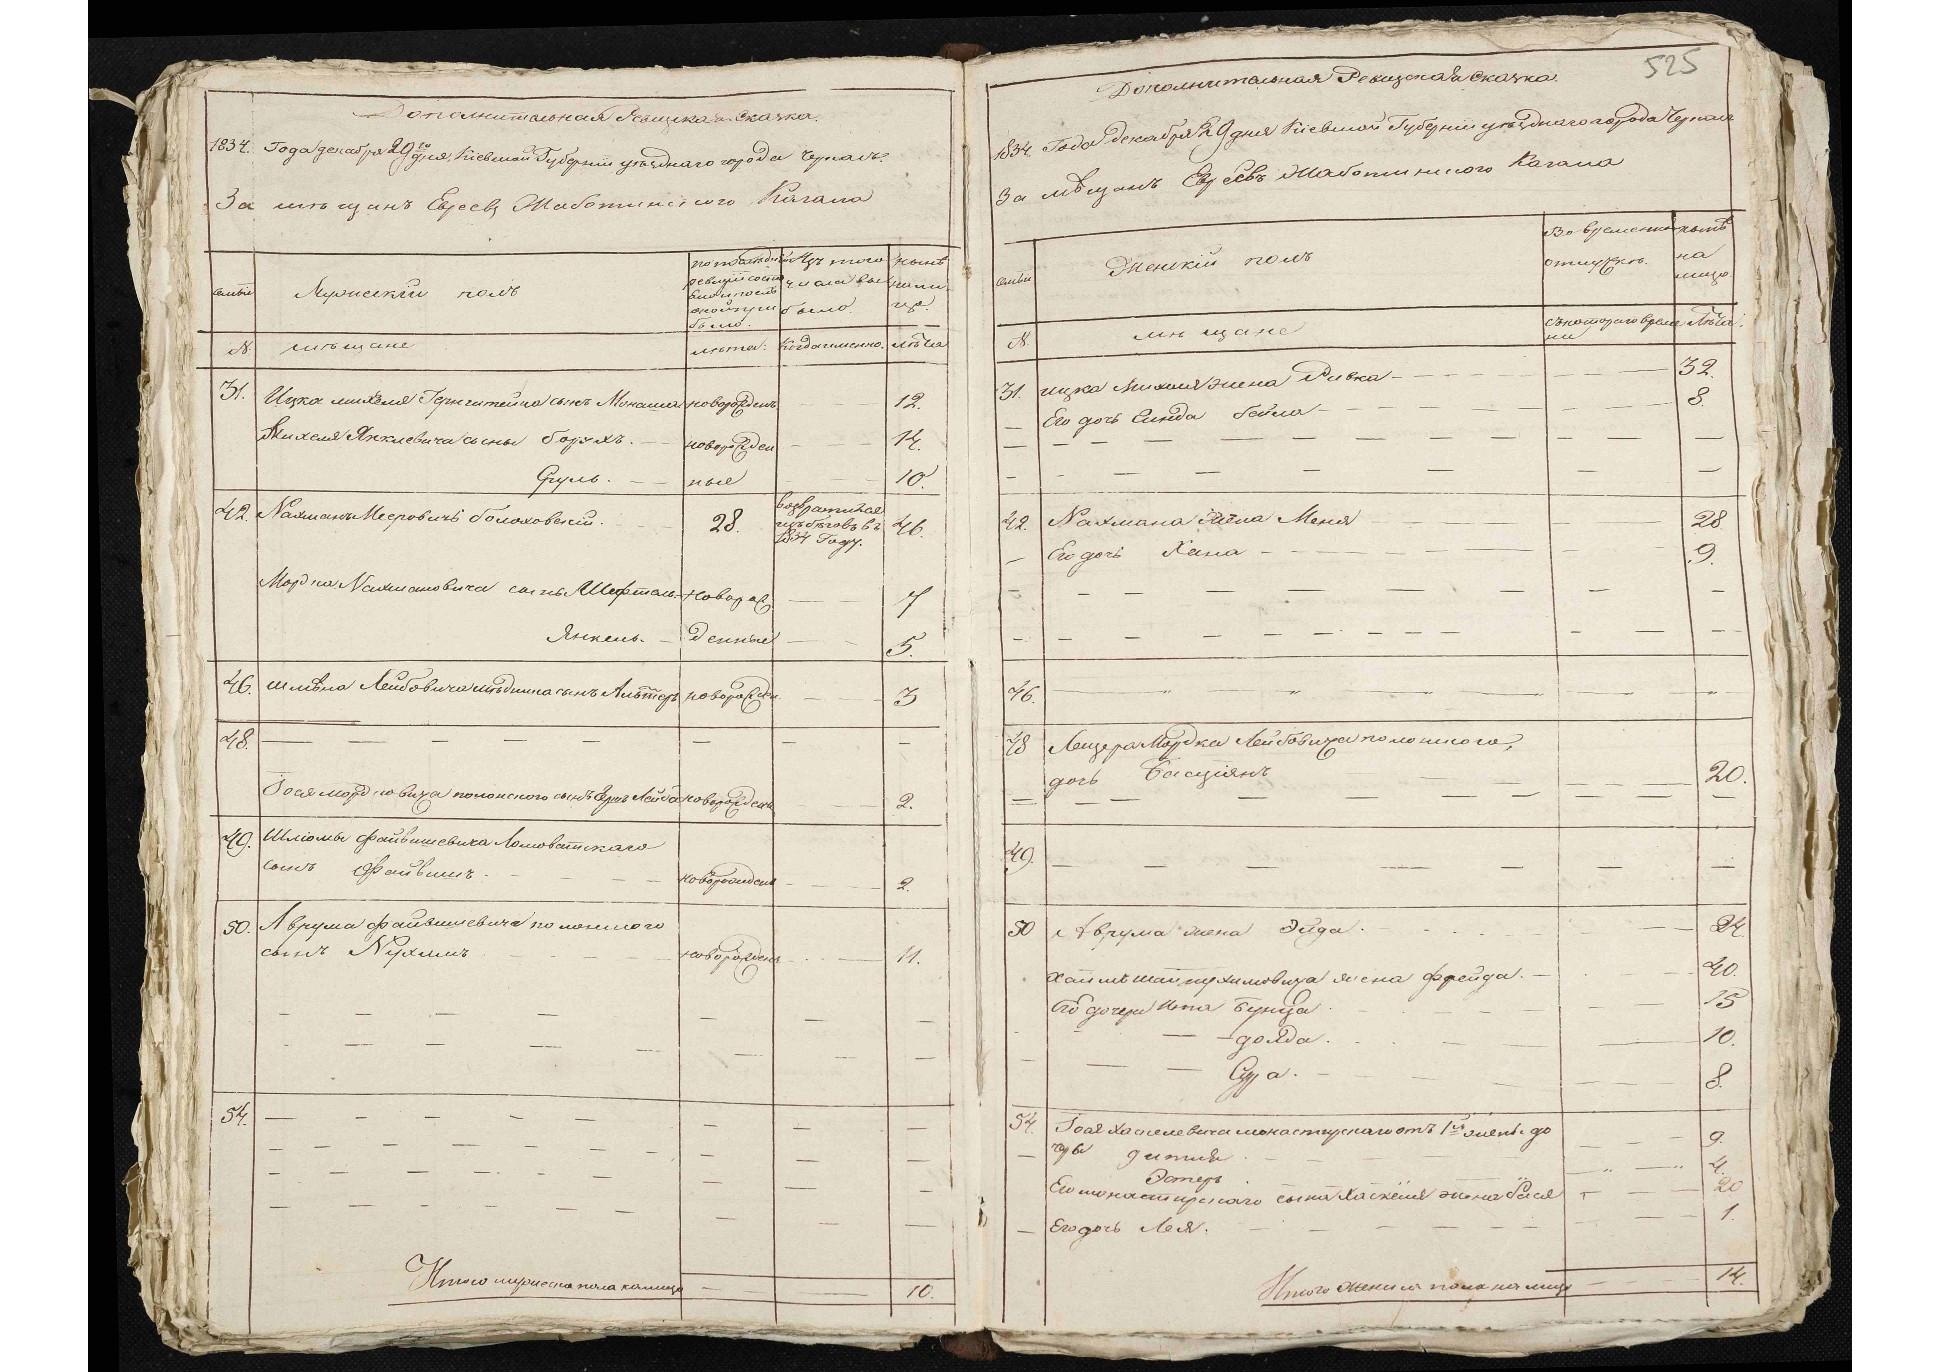 Дополнительная Ревизская Сказка.
1834. Года декабря 29го дня, Киевской Губернии уѣзднаго города Черкасъ
За мѣщанъ Евреевъ Жаботинского Кагала
семьи
Мужескій полъ
по последней ревизіи состояло и после оной прибыло.
Изъ того числа выбыло.
нынѣ на лицо.
№.
мѣщане
лѣта.
Когда именно.
лѣта
31. Ицка михеля Гернштейна сынъ Монашко новорожденъ 12.
Михеля Янкелевича сыны борухъ. новорожден 14.
Сруль. ные 10.
42. Нахманъ Мееровичъ болоховскій. 28. возвратился изъ бѣговъ въ 1834 Году. 46.
Мордка Нахмановича сыны Шефтель новорож 7
Янкель. денные 5.
46. шлёма Лейбовича сынъ Альтеръ новорожден. 3
48.
Іося мордковича полонского сынъ Гершъ Лейба новорожденъ 2.
49. Шлiомы файвишевича
сынъ Файвишъ. новорожденъ 2.
50. Аврума файвишевича полонского
сынъ Нухимъ новорожденъ 11.
54.
Итого мужеска пола на лицо 10.
525
Дополнительная Ревизская Сказка.
1834. Года декабря 29 дня Киевской Губерніи уѣзднаго города Черкас
За мѣщанъ Евреевъ Жаботинского Кагала
семьи
Женскій полъ
Во временной отлучкѣ.
нынѣ на лицо
№.
мѣщане
съ котораго времени
Лѣта.
31. ицка Михеля жена Ривка 32.
Его дочь Синда бейла 8.
42. Нахмана жена Меня 28
Его дочь Хана 9.
46.
48 Мордка Лейбовича полонского,
дочь Басціянъ 20.
49.
50 Аврума жена Эйда. 24.
жена фрейда. 40.
Его дочери Ита бунця. 15
10.
Сура. 8.
54. Іося Хаскелевича монастырскаго отъ 1й жены до
чери 9.
Эстеръ 4.
Его монастырскаго сына Хаскеля жена Бася 20
Его дочь Лея. 1.
Итого женска пола на лицо 14.